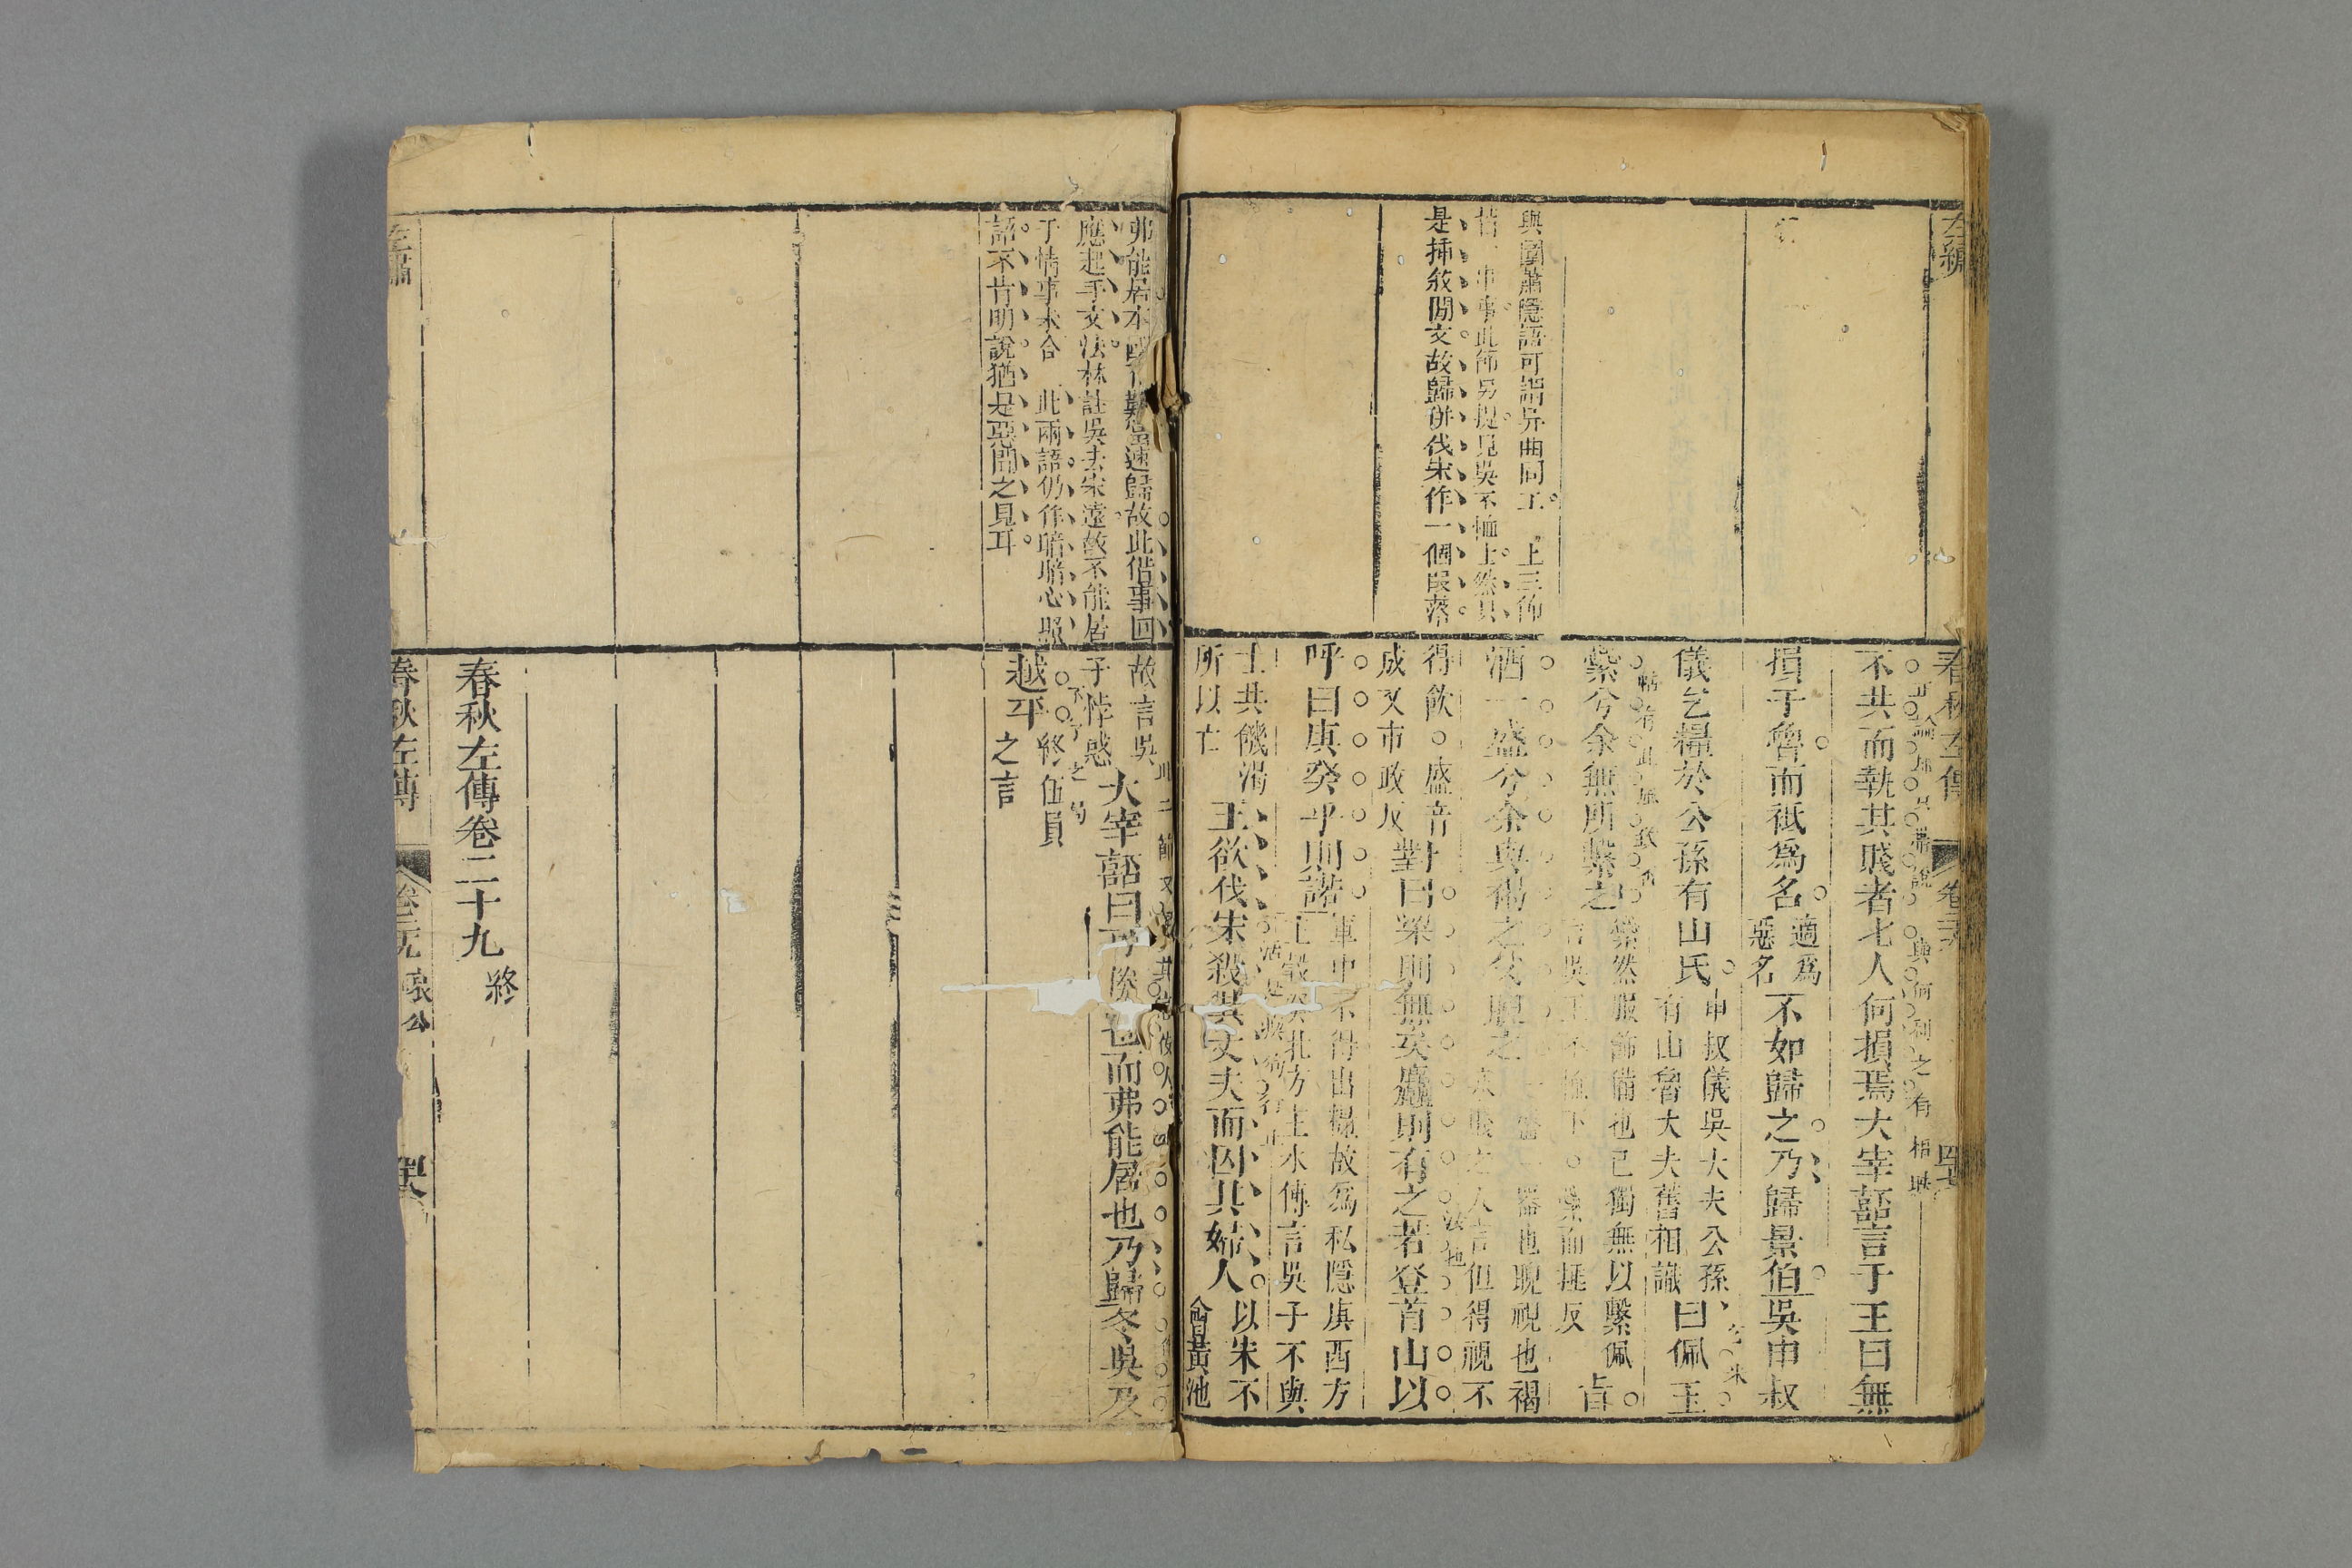 左繡
春秋左傳
卷二十九
與圍蕭隱語可謂异曲同工 上三節
皆一串事此節另提見吳不恤上然只
是揷敘閒文故歸併伐宋作一個段落
不共而執其賤者七人何損焉大宰嚭言于王曰無
損于魯而祗爲名
適爲
惡名
不如歸之乃歸景伯吳申叔
儀乞糧於公孫有山氏
申叔儀吳大夫公孫
有山魯大夫舊相識
曰佩玉
縈兮余無所繫之
縈然服飾備也己獨無以繫佩
言吳王不恤下
旨
酒一盛兮余與褐之父睨之
一盛一器也睨視也褐
寒賤之人言但得視不
得飲。盛音
成又市政反
對曰粱則無矣麤則有之若登首山以
呼曰庚癸乎則諾
軍中不得出糧故爲私隱庚西方
主穀癸北方主水傳言吳子不與
士共饑渴
所以亡
王欲伐宋殺其丈夫而囚其婦人
以宋不
會黃池
弗能居本
速歸故此借事回
應起手文法林註吳去宋遠故不能居
于情事未合 此兩語仍作暗暗心照
語不肯明說猶是惡聞之見耳
故言吳
子悖惑
大宰嚭曰可勝也而弗能居也乃歸冬吳及
越平
終伍員
之言
春秋左傳卷二十九
終
左繡
春秋左傳
卷二十九
哀公